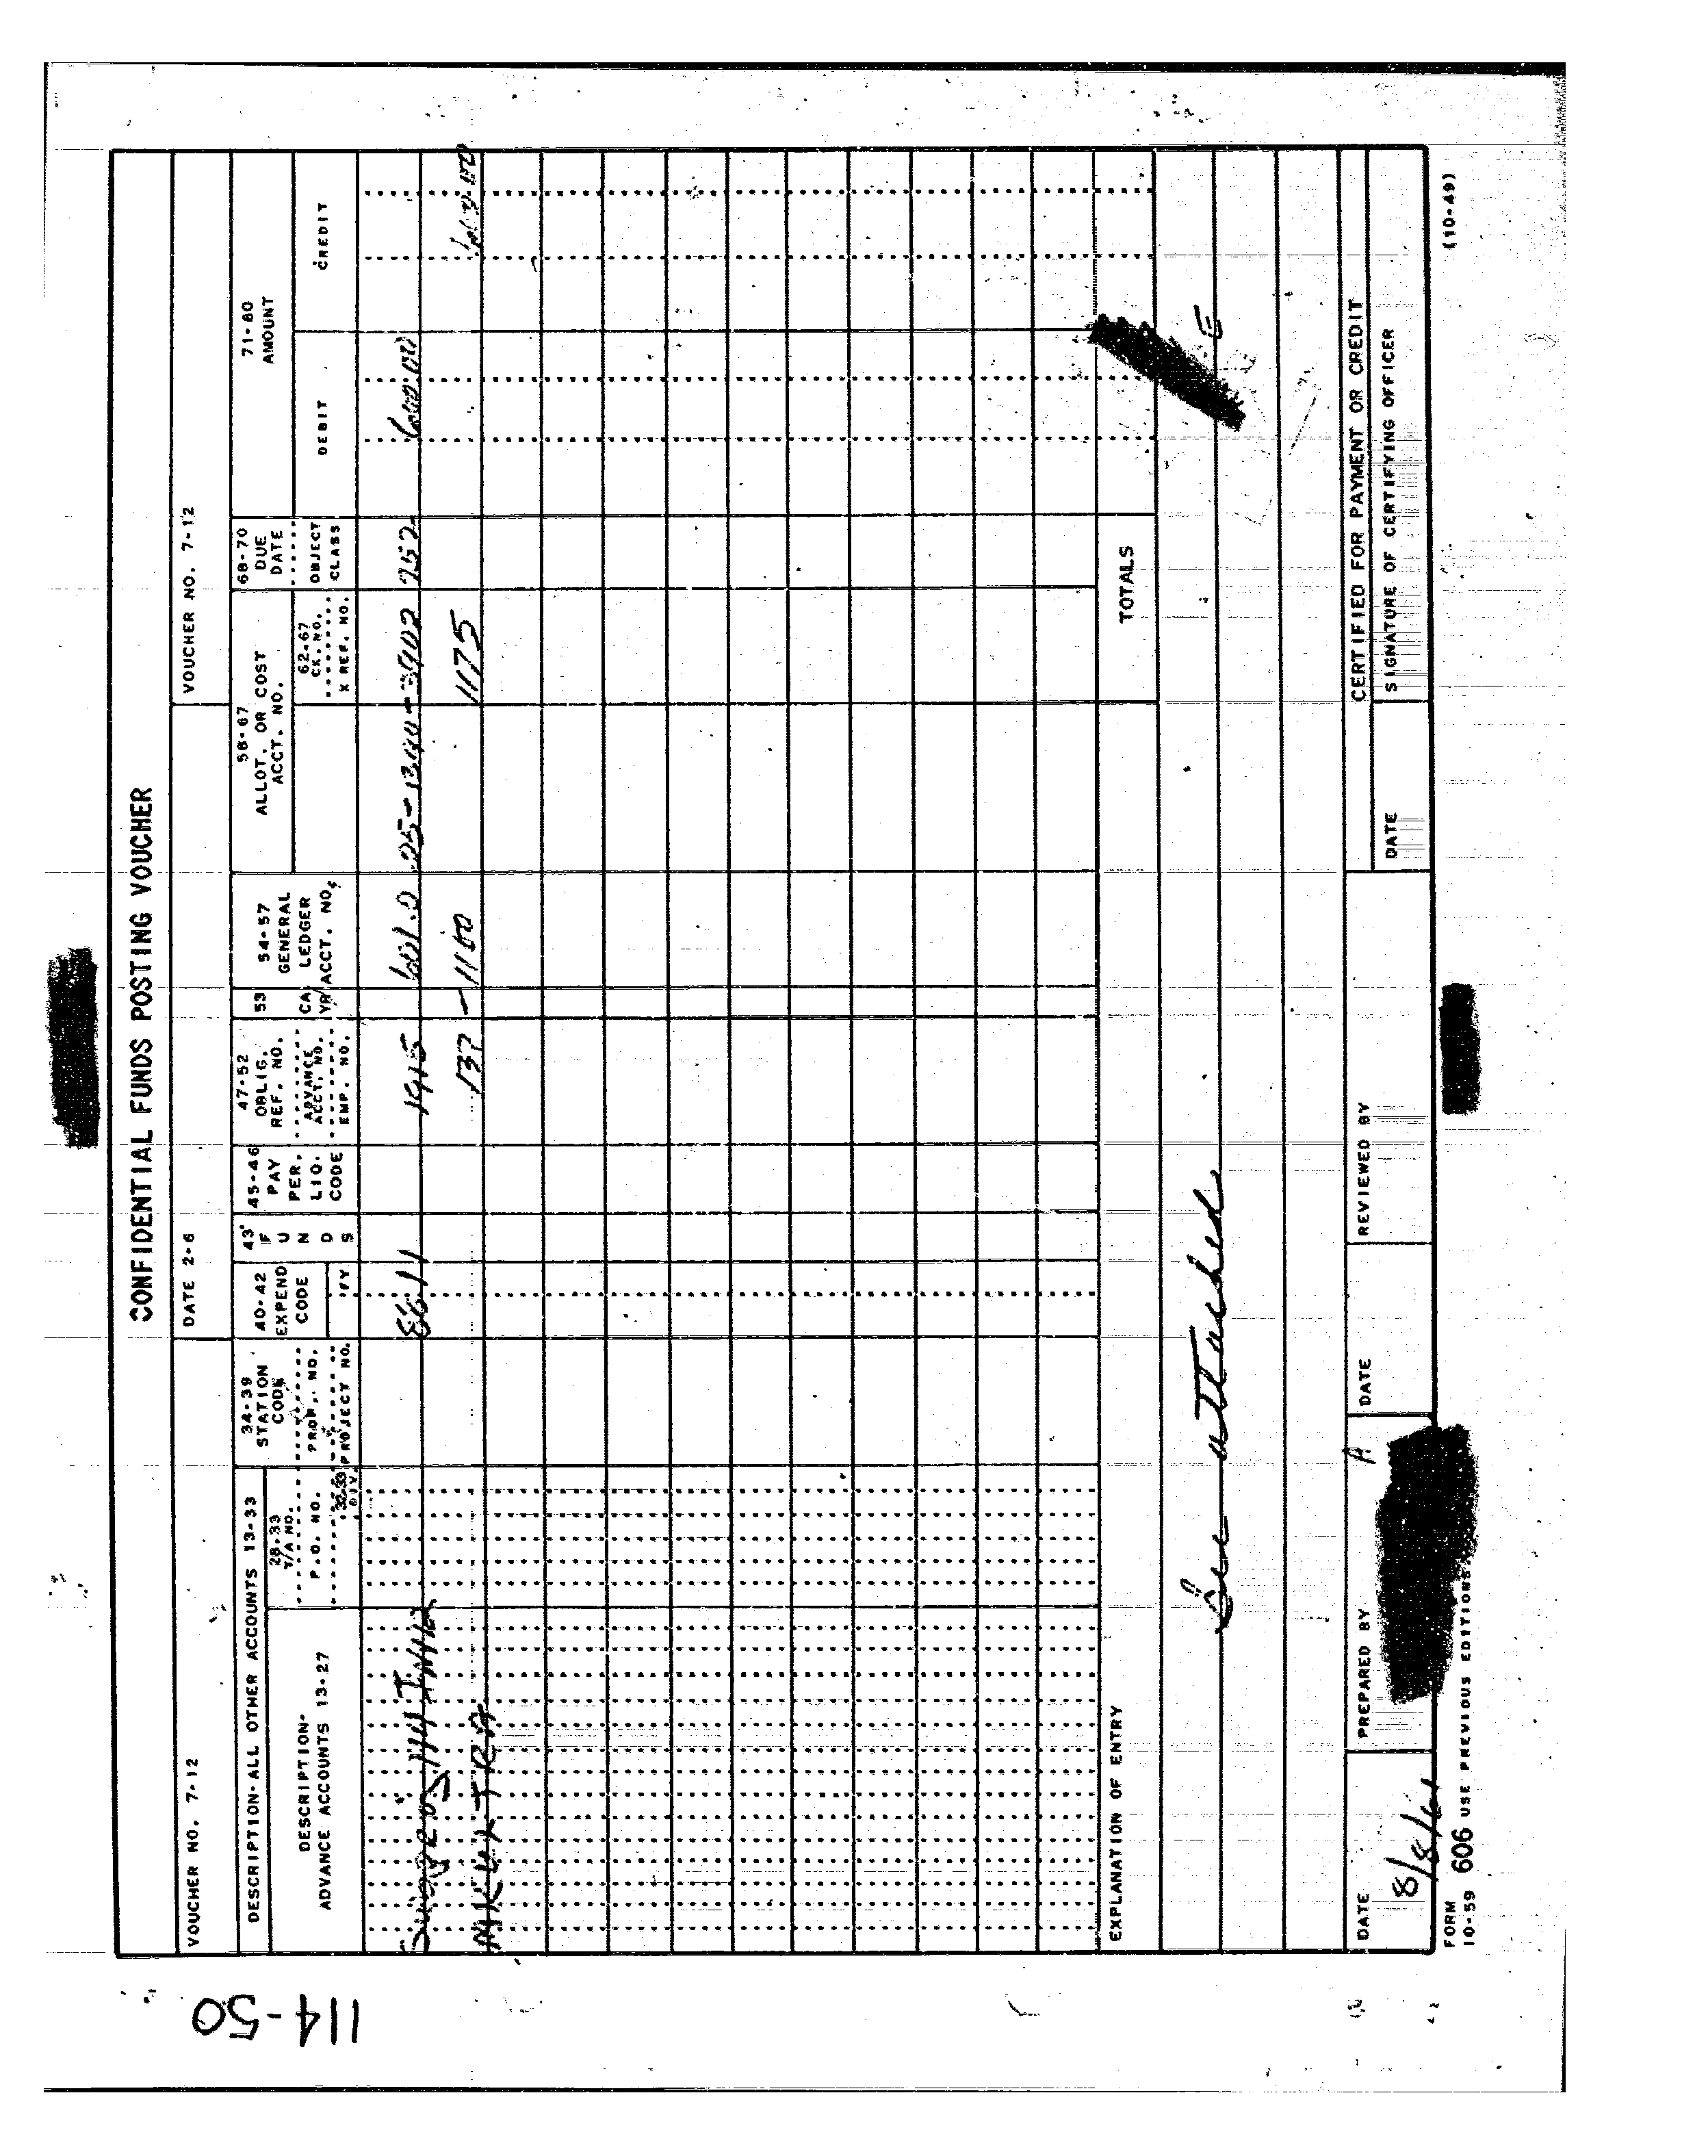 114-50
CONFIDENTIAL FUNDS POSTING VOUCHER
VOUCHER NO. 7-12 DATE 2-6 VOUCHER NO. 7-12
DESCRIPTION-ALL OTHER ACCOUNTS 13-33
DESCRIPTION-
ADVANCE ACCOUNTS 13-27
28-33
T/A NO.
P.O. NO.
32-33
DIV.
34-39
STATION
CODE
PROP. NO.
PROJECT NO.
40-42
EXPEND
CODE
FY
43
F
U
N
D
S
45-46
PAY
PER.
LIQ.
CODE
47-52
OBLIG.
REF. NO.
ADVANCE
ACCT. NO.
EMP. NO.
53
CA
YR
54-57
GENERAL
LEDGER
ACCT. NO.
58-67
ALLOT. OR COST
ACCT. NO.
62-67
CK. NO.
X REF. NO.
68-70
DUE
DATE
OBJECT
CLASS
71-80
AMOUNT
DEBIT CREDIT
8611 1915 601.0 25-1390-3902 752 600.00
MKULTRA 137 - 1160 1175 600.00
TOTALS
EXPLANATION OF ENTRY
See attached
E
A
DATE PREPARED BY DATE REVIEWED BY CERTIFIED FOR PAYMENT OR CREDIT
DATE SIGNATURE OF CERTIFYING OFFICER
8/8/61
FORM
10-59 606 USE PREVIOUS EDITIONS (10-49)